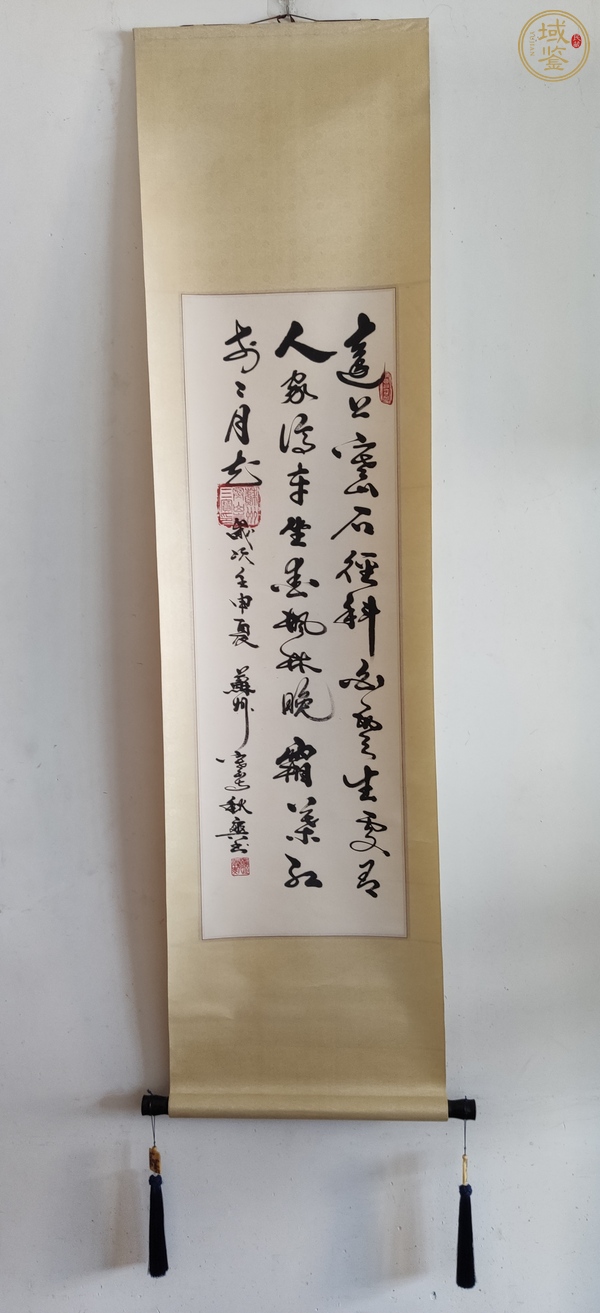 遠上寒山石徑斜白雲生處有
人家停車坐愛楓林晚霜葉紅
於二月花 歲次壬申夏 蘇州 秋
域鉴